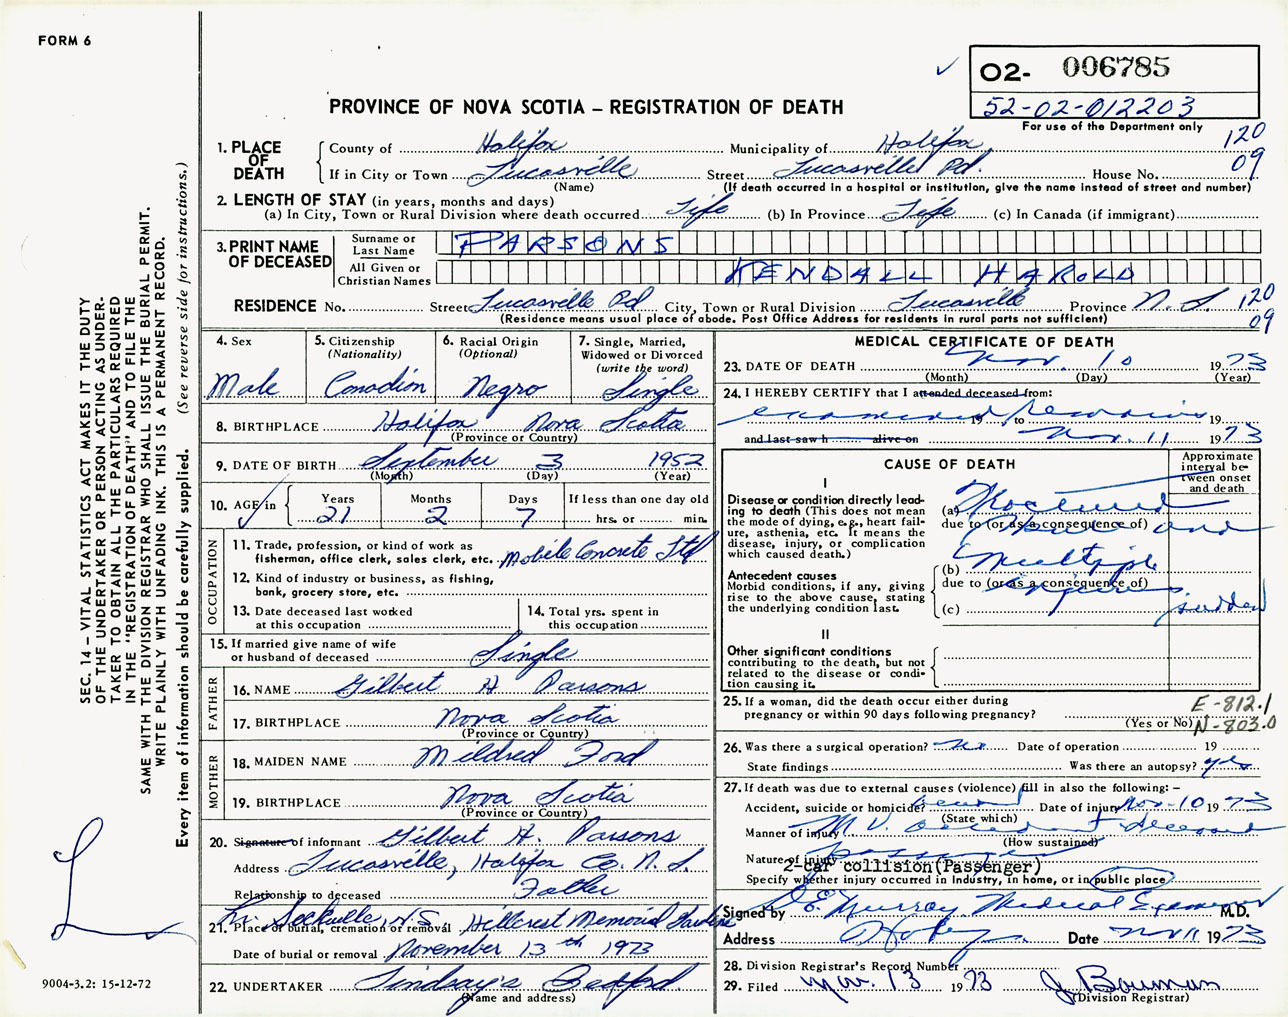 FORM 6
O2- 006785
52-02-012203
For use of the Department only
PROVINCE OF NOVA SCOTIA – REGISTRATION OF DEATH
120
09
1. PLACE OF DEATH
County of Halifax Municipality of Halifax
If in City or Town Lucasville Street Lucasville Rd. House No.
(Name) (If death occurred in a hospital or institution, give the name instead of street and number)
2. LENGTH OF STAY (in years, months and days)
(a) In City, Town or Rural Division where death occurred Life (b) In Province Life (c) In Canada (if immigrant)
3. PRINT NAME OF DECEASED
Surname or Last Name PARSONS
All Given or Christian Names KENDALL HAROLD
RESIDENCE No. Street Lucasville Rd City, Town or Rural Division Lucasville Province N.S. 120
(Residence means usual place of abode. Post Office Address for residents in rural parts not sufficient) 09
4. Sex
Male
5. Citizenship
(Nationality)
Canadian
6. Racial Origin
(Optional)
Negro
7. Single, Married, Widowed or Divorced
(write the word)
Single
8. BIRTHPLACE Halifax Nova Scotia
(Province or Country)
9. DATE OF BIRTH September 3 1952
(Month) (Day) (Year)
10. AGE in
Years Months Days If less than one day old
21 2 7 hrs. or min.
OCCUPATION
11. Trade, profession, or kind of work as fisherman, office clerk, sales clerk, etc. Mobile Concrete Ltd
12. Kind of industry or business, as fishing, bank, grocery store, etc.
13. Date deceased last worked at this occupation
14. Total yrs. spent in this occupation
15. If married give name of wife or husband of deceased Single
FATHER
16. NAME Gilbert H Parsons
17. BIRTHPLACE Nova Scotia
(Province or Country)
MOTHER
18. MAIDEN NAME Mildred Ford
19. BIRTHPLACE Nova Scotia
(Province or Country)
20. Signature of informant Gilbert H. Parsons
Address Lucasville, Halifax Co. N.S.
Relationship to deceased Father
Sackville, N.S. Hillcrest Memorial Gardens
21. Place of burial, cremation or removal
Date of burial or removal November 13th 1973
22. UNDERTAKER Lindsay's Bedford
(Name and address)
MEDICAL CERTIFICATE OF DEATH
23. DATE OF DEATH Nov. 10 1973
(Month) (Day) (Year)
24. I HEREBY CERTIFY that I attended deceased from:
examined remains 19 to 19
and last saw h alive on Nov. 11 1973
CAUSE OF DEATH
Approximate interval between onset and death
I
Disease or condition directly leading to death (This does not mean the mode of dying, e.g., heart failure, asthenia, etc. It means the disease, injury, or complication which caused death.)
(a) Fractured
due to (or as a consequence of) and
Antecedent causes
Morbid conditions, if any, giving rise to the above cause, stating the underlying condition last.
(b) Multiple
due to (or as a consequence of) injuries
(c) sudden
II
Other significant conditions contributing to the death, but not related to the disease or condition causing it.
25. If a woman, did the death occur either during pregnancy or within 90 days following pregnancy?
(Yes or No)
E-812.1
N-803.0
26. Was there a surgical operation? No Date of operation 19
State findings Was there an autopsy? yes
27. If death was due to external causes (violence) fill in also the following: –
Accident, suicide or homicide? Date of injury Nov. 10 1973
(State which)
Manner of injury M.V. accident deceased
(How sustained)
Nature of injury passenger
2-car collision(Passenger)
Specify whether injury occurred in industry, in home, or in public place.
Signed by D.E. Murray Medical Examiner M.D.
Address Date Nov 11 1973
28. Division Registrar's Record Number
29. Filed Nov. 13 1973 J Bowman
(Division Registrar)
SEC. 14 – VITAL STATISTICS ACT MAKES IT THE DUTY
OF THE UNDERTAKER OR PERSON ACTING AS UNDER-
TAKER TO OBTAIN ALL THE PARTICULARS REQUIRED
IN THE "REGISTRATION OF DEATH" AND TO FILE THE
SAME WITH THE DIVISION REGISTRAR WHO SHALL ISSUE THE BURIAL PERMIT.
WRITE PLAINLY WITH UNFADING INK. THIS IS A PERMANENT RECORD.
Every item of information should be carefully supplied. (See reverse side for instructions.)
9004-3.2: 15-12-72